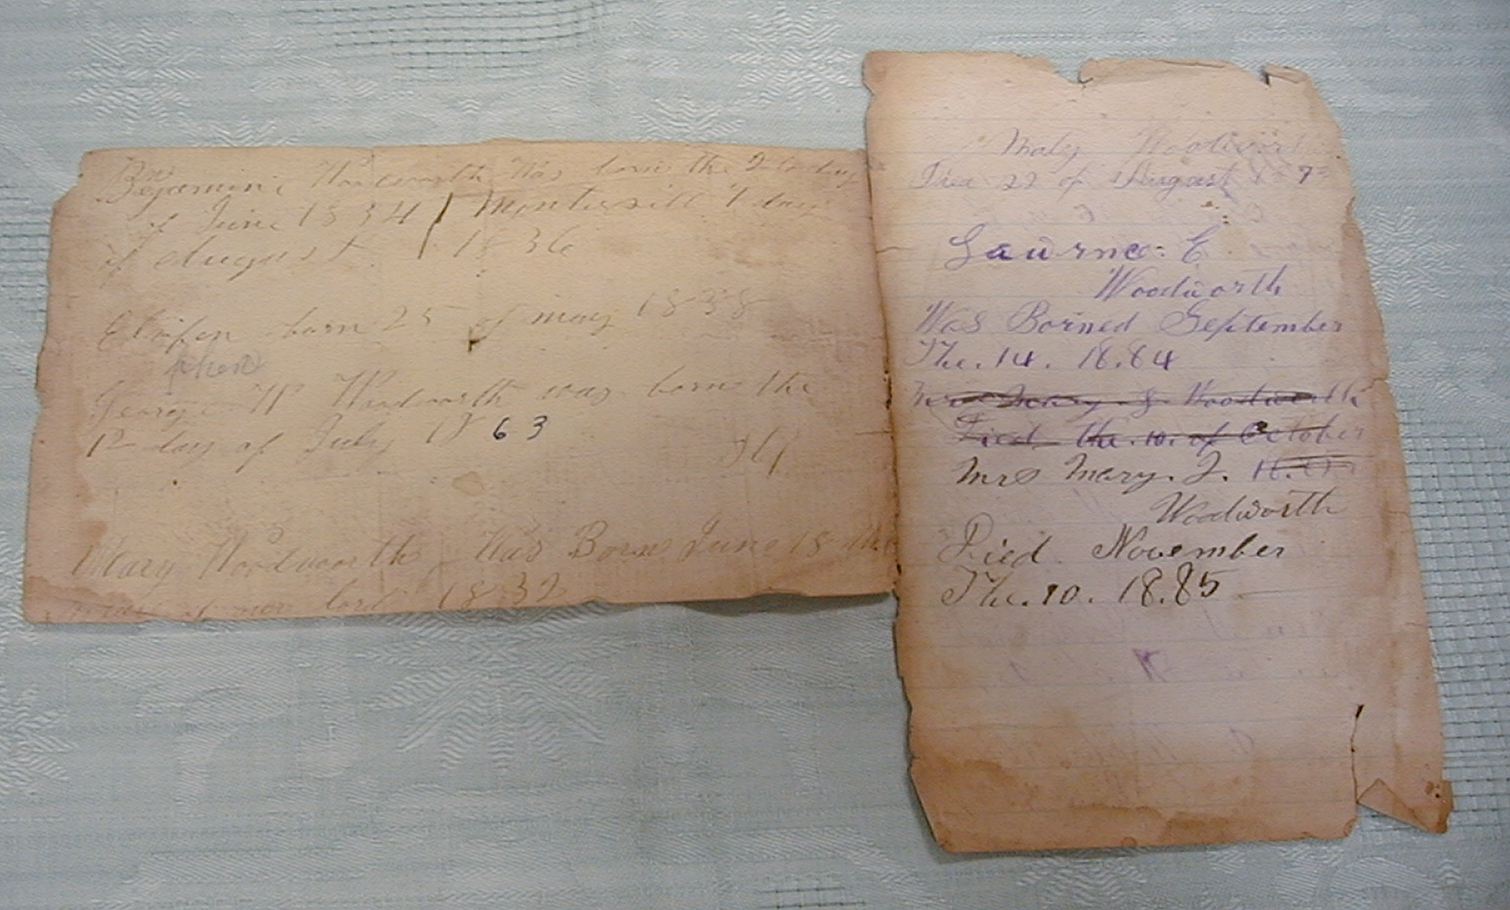 Bejamini Woodworth Was born the 2 day
of June 1834 / 4 day
of August 1836
born 25 of may 1838
phen
George W Woodworth was born the
12 day of July 18 63
Mary Woodworth Was Born June 18 the
of our lord 1832
Maly Woodworth
Died 22 of August
Lawrnce. E
Woodworth
Was Borned September
The. 14. 18.84
Mrs Mary J Woodworth
Died the. 10. of October
Mrs Mary. J. 18.
Woodworth
Died November
The. 10. 18.85